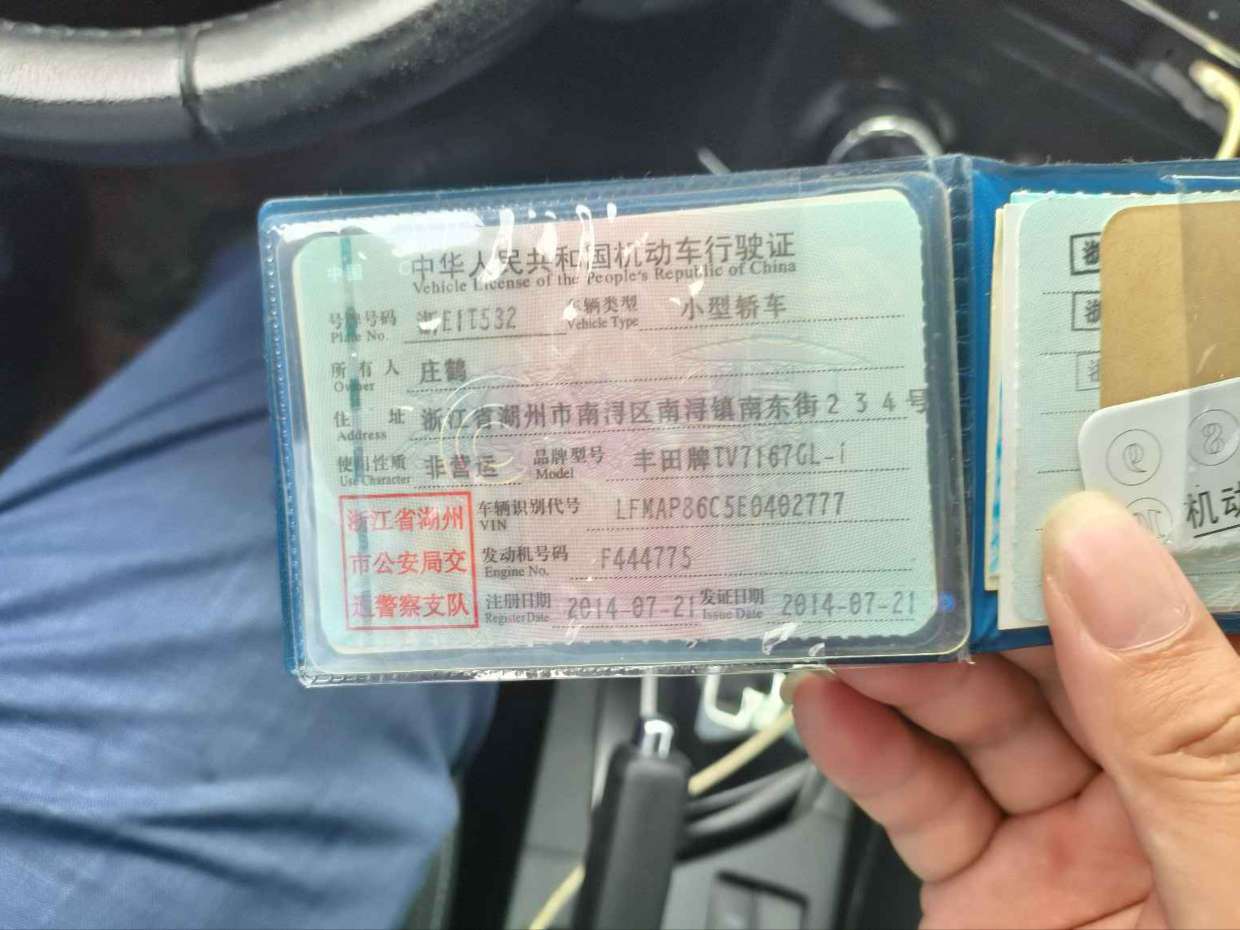 中华人民共和国机动车行驶证
Vehicle License of the People's Republic of China
号牌号码 浙EIT532 车辆类型 小型轿车
Plate No. Vehicle Type
所有人 庄鹤
Owner
住址 浙江省湖州市南浔区南浔镇南东街234号
Address
使用性质 非营运 品牌型号 丰田牌TV7167GL-i
Use Character Model
浙江省湖州
市公安局交
通警察支队
车辆识别代号 LFMAP86C5E0402777
VIN
发动机号码 F444775
Engine No.
注册日期 2014-07-21 发证日期 2014-07-21
Register Date Issue Date
浙
浙
机动